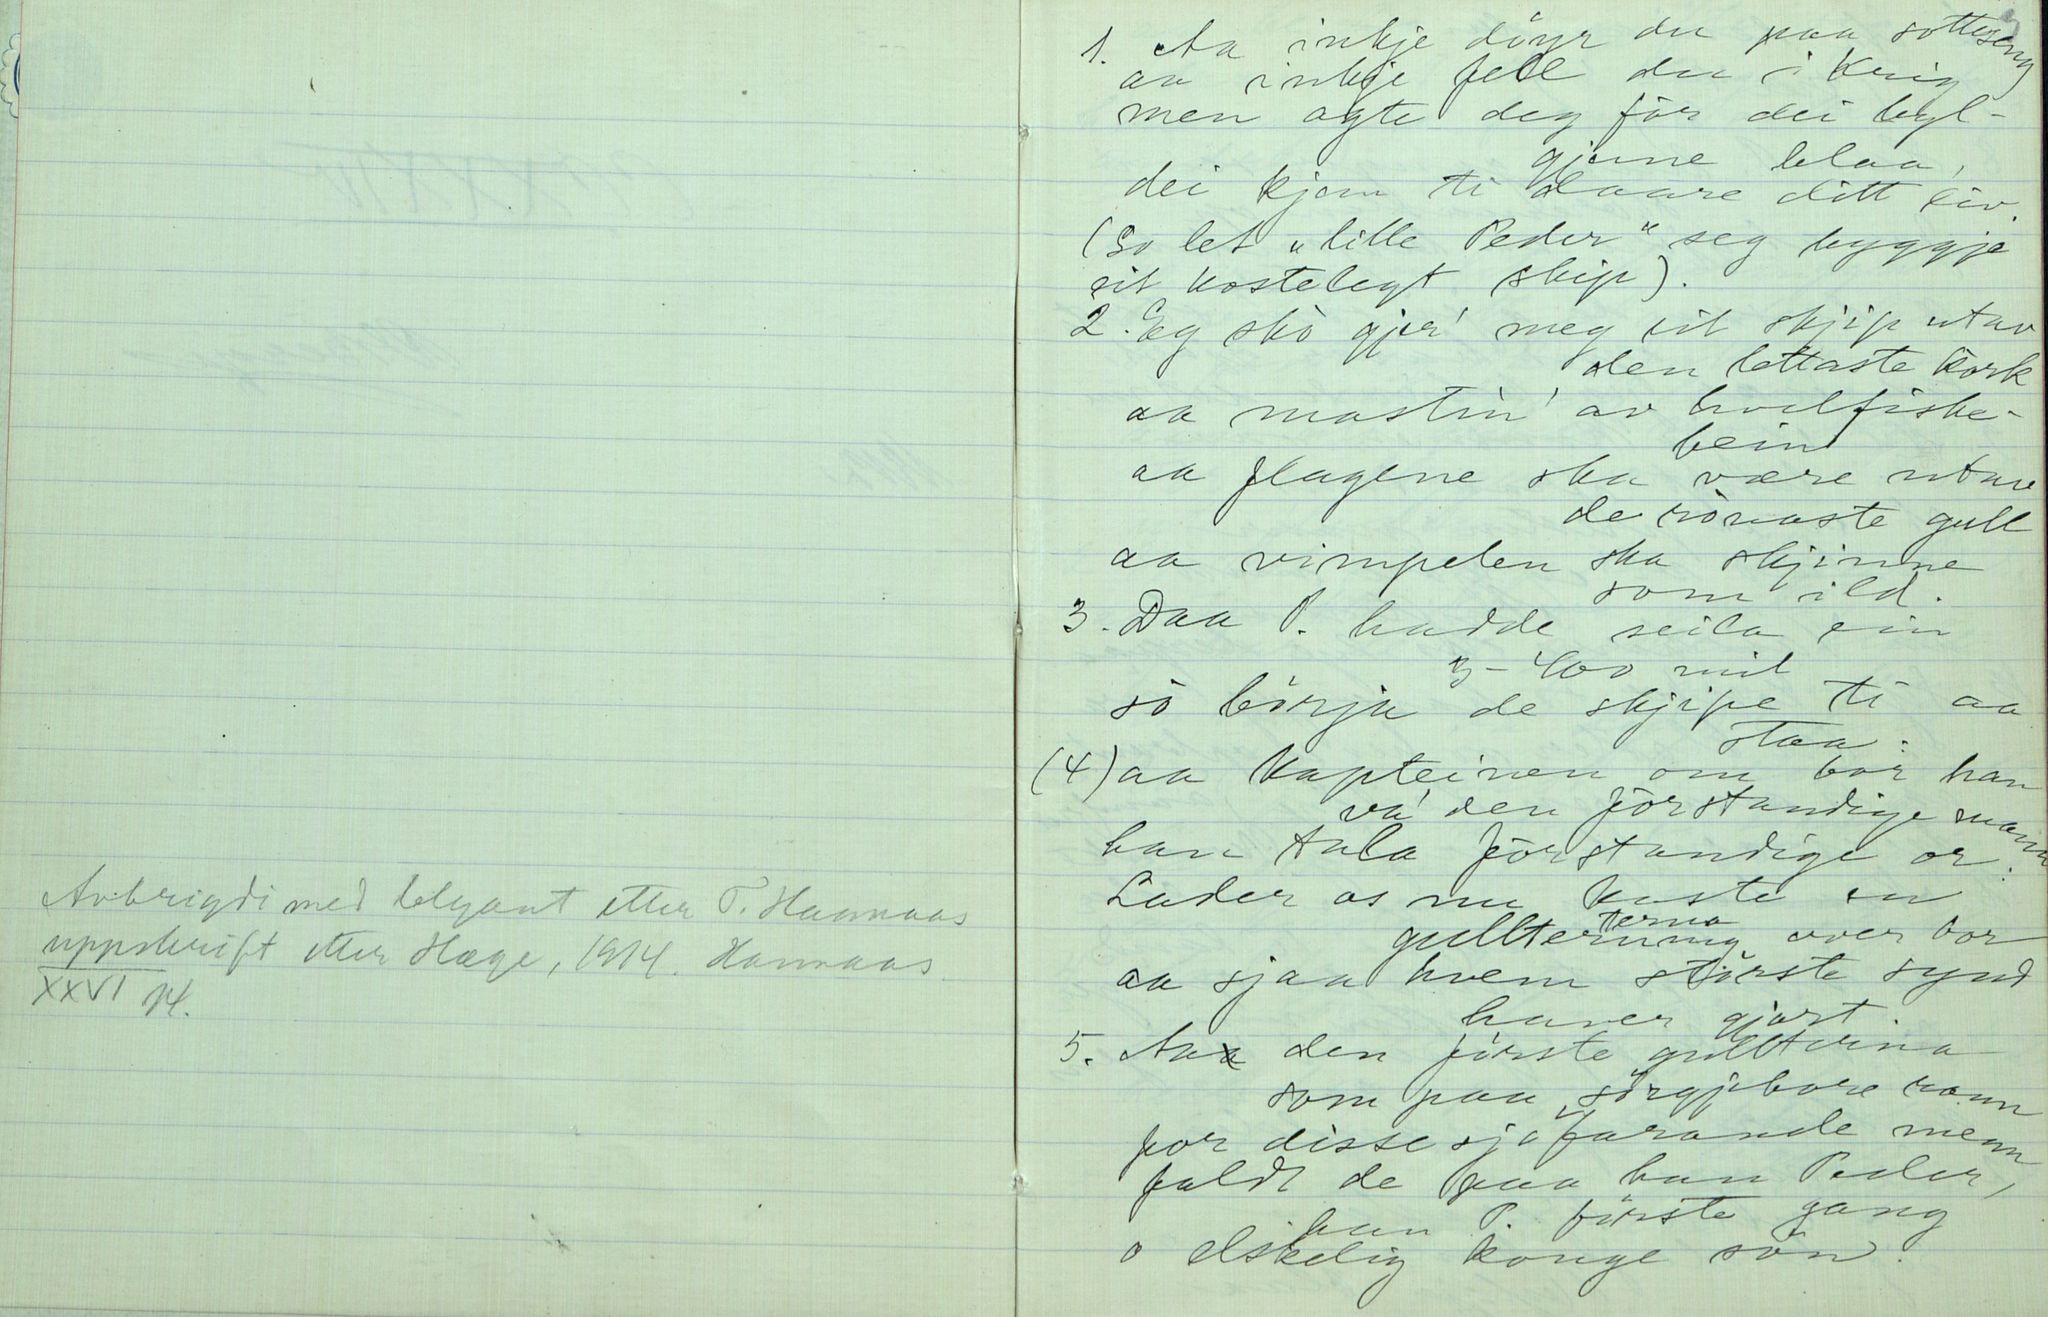 Avbrigdi med telyant etter T. Hannaas
uppskrift etter Hæge, 1914. Hannaas
XXVI 14.
1. Aa inkje döyr du paa sotteseng
aa inkje fell du i Krig
men agte deg för dei byl-
gjune blaa,
dei kjem ti daare ditt liv.
(So let "lille Peder" seg byggje
eit kostelegt skip).
2. Eg sko gjer' meg eit skjip utav
den lettaste kork
aa mastin' av hvalfiske-
bein
aa flagene ska være utav
de röuaste gull
aa vimpelen ska skjinne
som ild.
3. Daa P. hadde seila ein
3-400 mil
so börja de skjipe ti aa
staa:
(4) aa Kapteinen om bor han
va' den förstandige mann
han tala förstandige or:
Lader os nu kaste en
terna
gullterning over bor
aa sjaa hvem störste synd
haver gjort.
5. Aa den förste gullterina
som paa sörgjebore rann
for disse sjöfarande menn,
faldt de paa han Peder,
han P. förste gang
o elskelig konge sön.